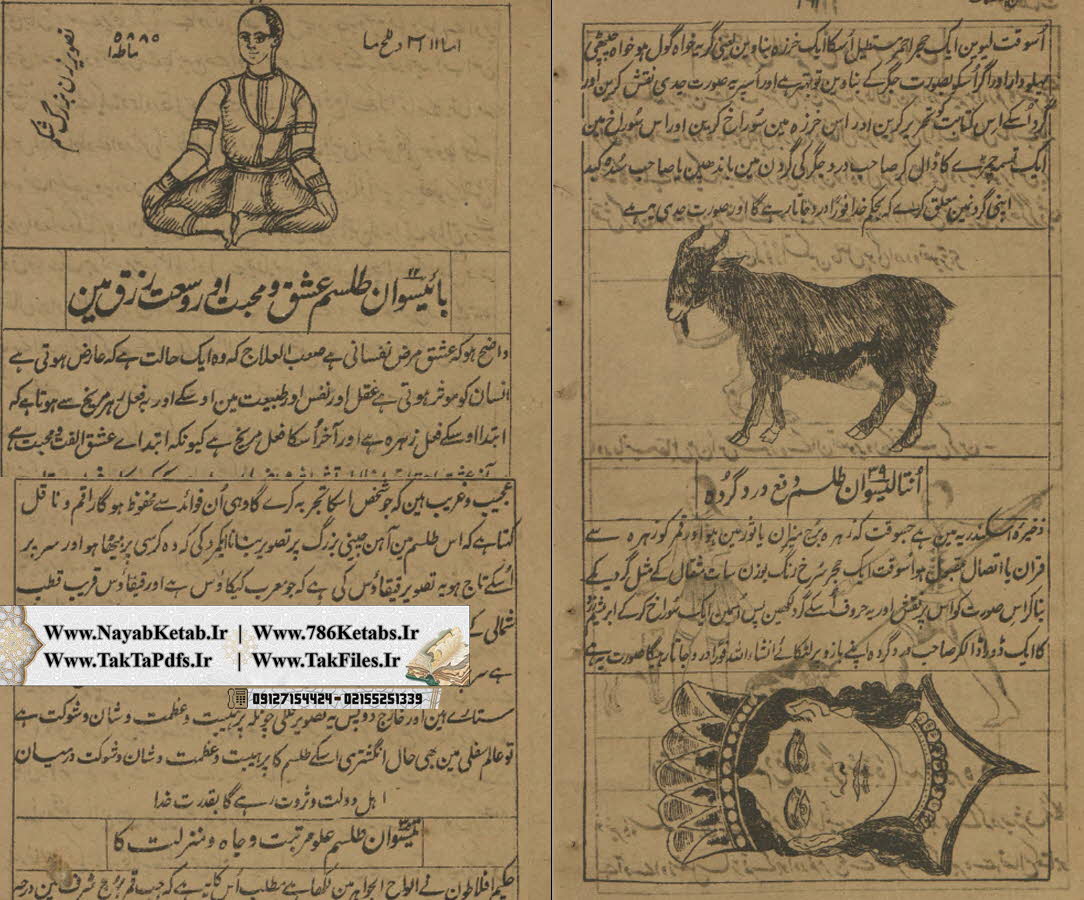 تصویر زن بزرگ شکم
۵۸۸۵
ماطدا
بائیسوان طلسم عشق و محبت اور وسعت رزق مین
۲۲
واضح ہو کہ عشق مرض نفسانی ہے صعب العلاج کہ وہ ایک حالت ہے کہ عارض ہوتی ہے
انسان کو موثر ہوتی ہے عقل اور نفس اور طبیعت مین اوسکے اور یہ فعل زہرہ مریخ سے ہوتا ہے کہ
ابتدا اوسکے فعل زہرہ ہے اور آخر اُسکا فعل مریخ ہے کیونکہ ابتداے عشق الفت و محبت ہے
عجیب و غریب ہین کہ جو شخص اسکا تجربہ کرے گا وہی اُن فوائد سے محفوظ ہوگا راقم و ناقل
کہتا ہے کہ اس طلسم مین آہن چینی بزرگ پر تصویر بنانا ایکمرد کی کہ وہ کرسی پر بیٹھا ہو اور سر پر
اُسکے تاج ہو یہ تصویر قیقاؤس کی ہے کہ جو معرب کیکاؤس ہے اور قیقاؤس قریب قطب
شمالی کے
Www.NayabKetab.Ir | Www.786Ketabs.Ir
Www.TakTaPdfs.Ir | Www.TakFiles.Ir
ہے سر
09127154424 - 02155251339
ستارے ہین اور خارج دو پس یہ تصویر فلکی چونکہ پر ہیبت و عظمت و شان و شوکت ہے
تو عالم سفلی مین بھی حال انگشتری اسکے طلسم کا پر ہیبت و عظمت و شان و شوکت درمیان
اہل دولت و ثروت رہے گا بقدرت خدا
تیئیسوان طلسم علو مرتبت و جاہ و منزلت کا
حکیم افلاطون نے الواح الجواہر مین لکھا ہے مطلب اُس کا یہ ہے کہ جب قمر برج شرف مین درجہ
اُسوقت لیوین ایک حجر احمر مستطیل اُسکا ایک خرزہ بناوین یعنی گریہ خواہ گول ہو خواہ چپٹی
پہلودار اور اگر اُسکو بصورت جگر کے بناوین تو بہتر ہے اور اسپر یہ صورت جدی نقش کرین اور
گرد اُسکے اِس کتابت کو تحریر کرین اور اس خرزہ مین سوراخ کرین اور اس سوراخ مین
ایک تسمہ چمڑے کا ڈال کر صاحب درد جگر کی گردن مین باندھین یا صاحب سدہ کبد
اپنی گردنمین معلق کرے کہ بحکم خدا فوراً درد جاتا رہے گا اور صورت جدی یہ ہے
۳۹
اُنتالیسوان طلسم دفع درد گردہ
ذخیرہ اسکندریہ مین ہے جسوقت کہ زہرہ برج میزان یا ثور مین ہو اور قمر کو زہرہ سے
قران یا اتصال مقبول ہو اُسوقت ایک حجر سرخ رنگ بوزن سات مثقال کے مثل گردیکے
بنا کر اس صورت کو اس پر نقش اور یہ حروف اُسکے گرد لکھین پس اُسمین ایک سوراخ کرکے ابریشم
کا ایک ڈورا ڈالکر صاحب درد گردہ اپنے بازو پر لٹکائے انشاءاللہ فوراً درد جاتا رہیگا صورت یہ ہے